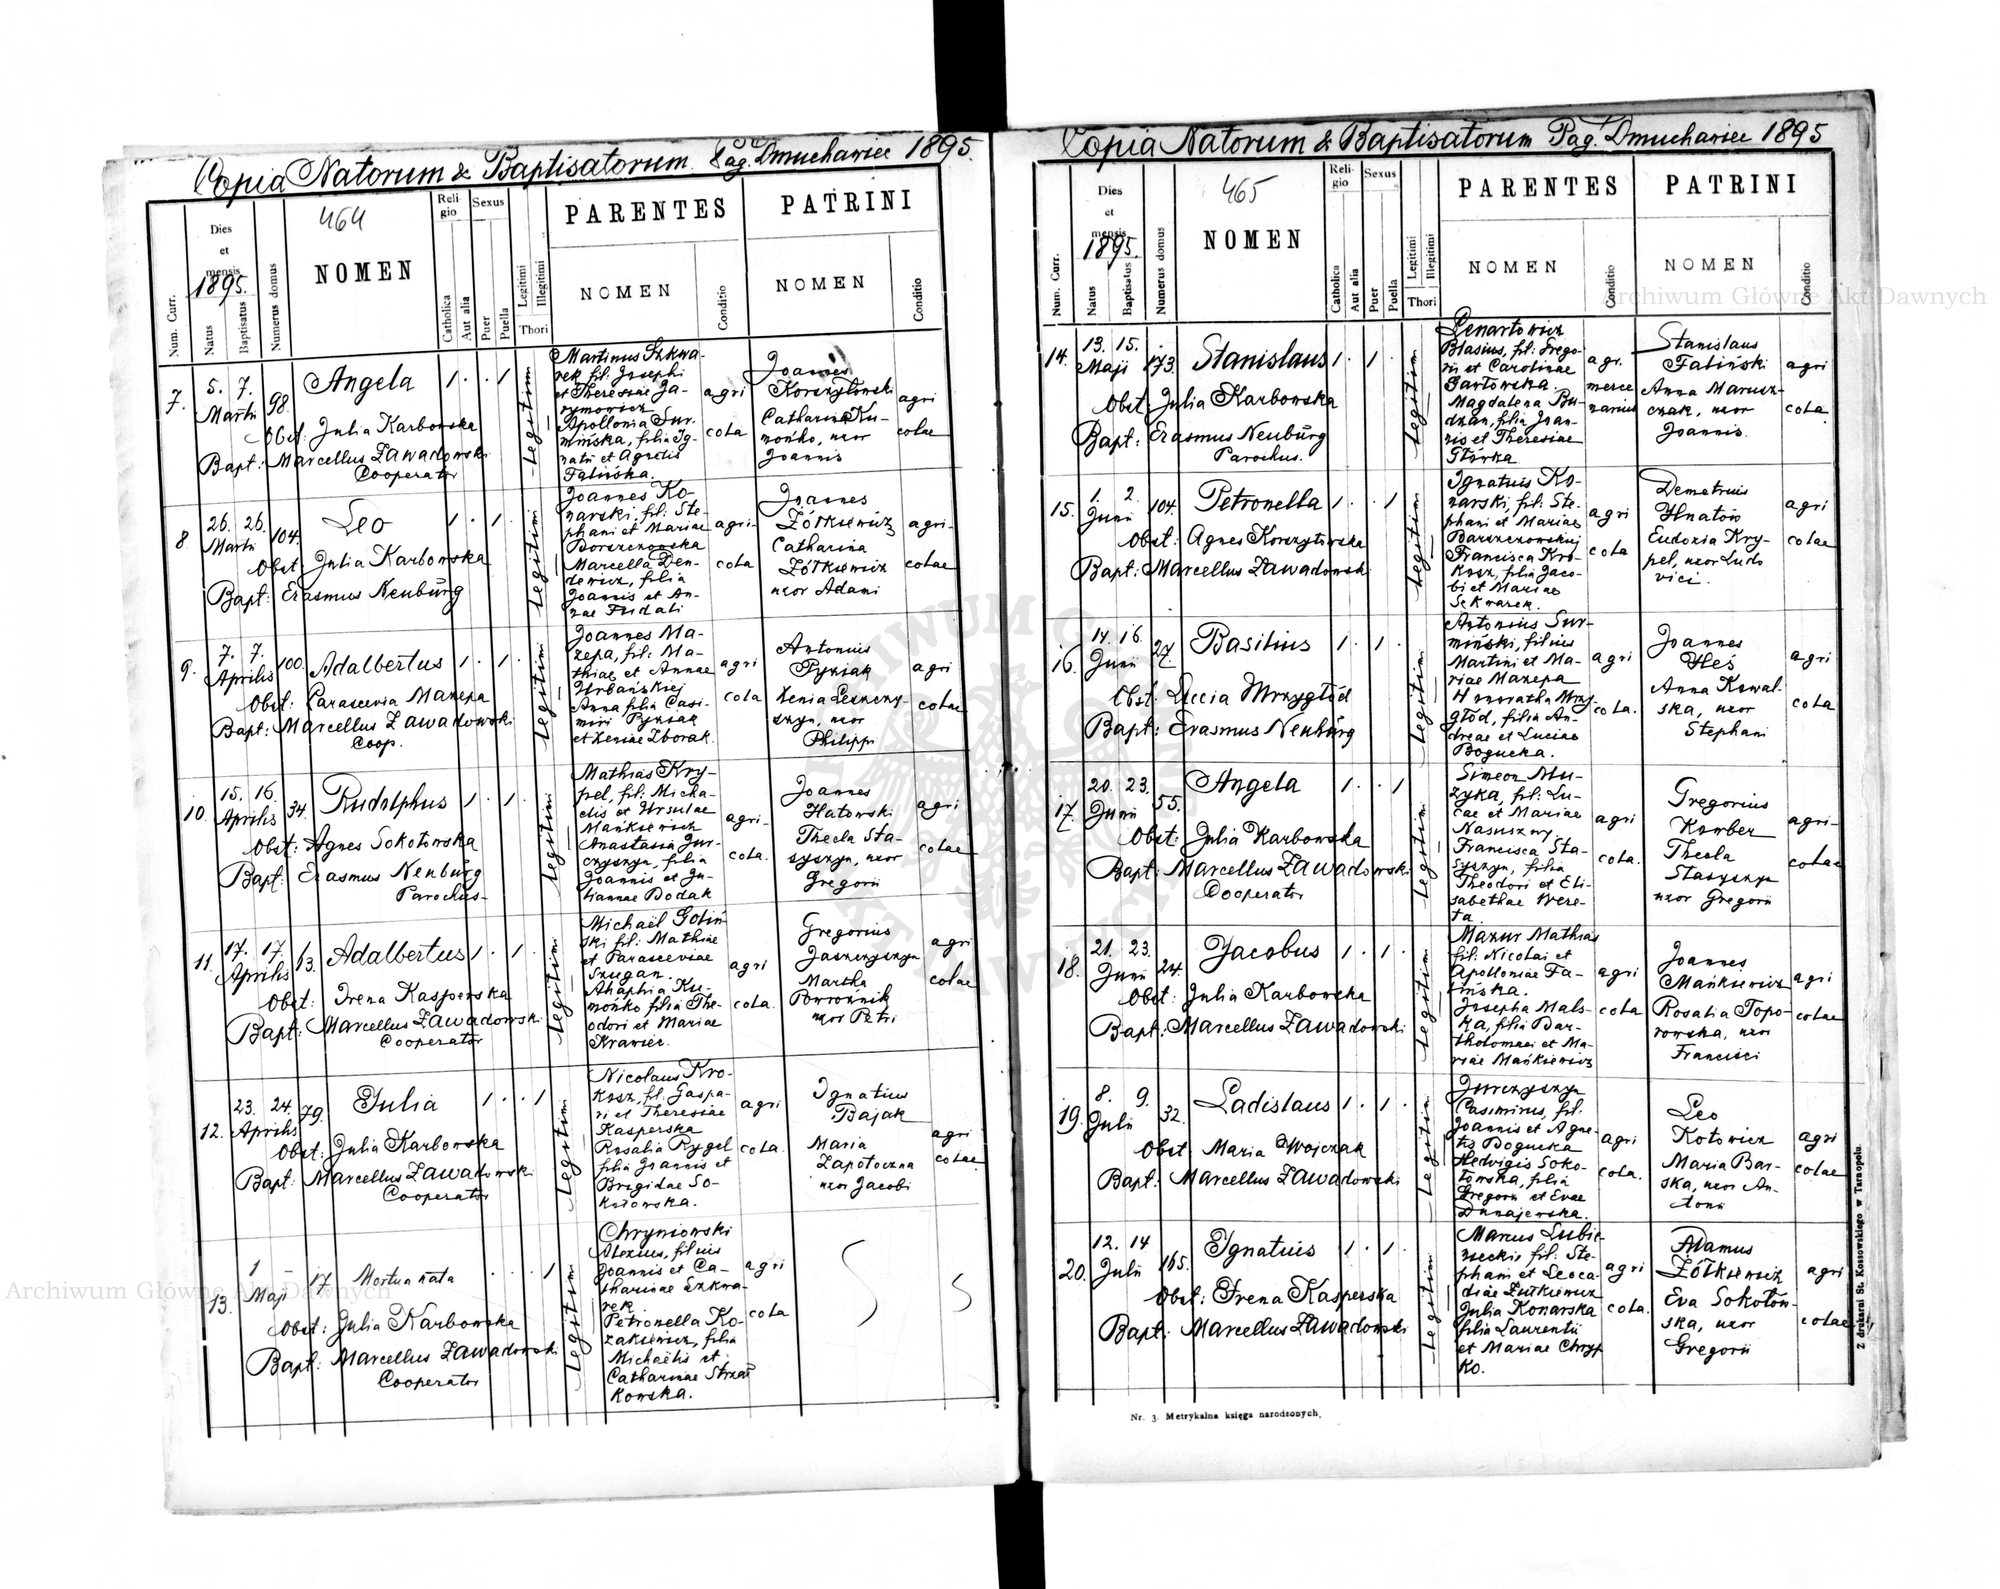 Copia Natorum & Baptisatorum. Pag. Dmuchawiec 1895.
464
Num. Curr.
Dies et mensis
1895.
Natus
Baptisatus
Numerus domus
NOMEN
Religio
Catholica
Aut alia
Sexus
Puer
Puella
Legitimi
Illegitimi
Thori
PARENTES
NOMEN
Conditio
PATRINI
NOMEN
Conditio
7. 5. 7. Martii 98. Angela 1 . . 1 Legitimi
Obst: Julia Karbowska
Bapt: Marcellus Zawadowski
Cooperator
Martinus Szkwa-
rek fil. Josephi
et Theresiae Ja-
rymowicz
Apollonia Sur-
mińska, filia Ig-
natii et Agnetis
Falińska.
agri
cola
Joannes
Korszyłowski
Catharina Ku-
mońko, uxor
Joannis
agri
colae
8. 26. 26. Martii 104. Leo 1 . 1 . Legitimi
Obst: Julia Karbowska
Bapt: Erasmus Neubürg
Joannes Ko-
narski, fil: Ste-
phani et Mariae
Borszczowska
Marcella Den-
dewicz, filia
Joannis et An-
nae Fridali
agri-
cola
Joannes
Żółkiewicz
Catharina
Żółkiewicz
uxor Adami
agri-
colae
9. 7. 7. Aprilis 100. Adalbertus 1 . 1 . Legitimi
Obst: Parascevia Mazepa
Bapt: Marcellus Zawadowski
Coop.
Joannes Ma-
zepa, fil: Ma-
thiae et Annae
Urbańskiej
Anna filia Casi-
miri Pyziak
et Xeniae Zborak.
agri
cola
Antonius
Pyziak
Xenia Leszczy-
szyn, uxor
Philippi
agri
colae
10. 15. 16. Aprilis 34. Rudolphus 1 . 1 . Legitimi
Obst: Agnes Sokołowska
Bapt: Erasmus Neubürg
Parochus
Mathias Kry-
pel, fil: Micha-
elis et Ursulae
Mańkiewicz
Anastasia Jur-
czyszyn, filia
Joannis et Ju-
liannae Dodak
agri-
cola.
Joannes
Hatowski
Thecla Sta-
syszyn, uxor
Gregorii
agri
colae
11. 17. 17. Aprilis 63. Adalbertus 1 . 1 . Legitimi
Obst: Irena Kasperska
Bapt: Marcellus Zawadowski
Cooperator
Michaël Goliń-
ski fil: Mathiae
et Parasceviae
Szugan.
Ahaphia Ku-
mońko filia The-
odori et Mariae
Krawiec.
agri
cola.
Gregorius
Jaszczyszyn
Martha
Powroźnik
uxor Petri
agri
colae
12. 23. 24. Aprilis 79. Julia 1 . . 1 Legitimi
Obst: Julia Karbowska
Bapt: Marcellus Zawadowski
Cooperator
Nicolaus Kro-
kosz, fil: Gaspa-
ri et Theresiae
Kasperska
Rosalia Rygel
filia Joannis et
Brigidae So-
kołowska.
agri
cola.
Ignatius
Bajak
Maria
Zapotoczna
uxor Jacobi
agri
colae
13. 1 Maji 17 Mortua nata . . . 1 Legitimi
Obst: Julia Karbowska
Bapt: Marcellus Zawadowski
Cooperator
Chryniowski
Alexius, filius
Joannis et Ca-
tharinae Szkwa-
rek.
Petronella Ko-
zakiewicz, filia
Michaëlis et
Catharinae Strzał-
kowska.
agri
cola
Copia Natorum & Baptisatorum Pag. Dmuchawiec 1895
465
Num. Curr.
Dies et mensis
1895.
Natus
Baptisatus
Numerus domus
NOMEN
Religio
Catholica
Aut alia
Sexus
Puer
Puella
Legitimi
Illegitimi
Thori
PARENTES
NOMEN
Conditio
PATRINI
NOMEN
Conditio
14. 13. 15. Maji 173. Stanislaus 1 . 1 . Legitimi
Obst: Julia Karbowska
Bapt: Erasmus Neubürg
Parochus.
Lenartowicz
Blasius, fil: Grego-
rii et Carolinae
Magdalena Bu-
dzan, filia Joan-
nis et Theresiae
Górka
agri.
merce
narius
Stanislaus
Faliński
Anna Marusz-
czak, uxor
Joannis.
agri
cola.
15. 1. 2. Junii 104. Petronella 1 . . 1 Legitimi
Obst: Agnes Korszyłowska
Bapt: Marcellus Zawadowski
Ignatius Ko-
narski, fil: Ste-
phani et Mariae
Barszczowskiej
Francisca Kro-
kosz, filia Jaco-
bi et Mariae
Skwarek.
agri
cola
Demetrius
Hnatów
Eudoxia Kry-
pel, uxor Ludo
vici.
agri
colae
16. 14. 16. Junii 27. Basilius 1 . 1 . Legitimi
Obst: Lucia Mrzygłód
Bapt: Erasmus Neubürg
Antonius Sur-
miński, filius
Martini et Ma-
riae Mazepa
Honoratha Mrzy-
głód, filia An-
dreae et Luciae
Bogucka.
agri
cola.
Joannes
Heś
Anna Kowal-
ska, uxor
Stephani
agri
cola
17. 20. 23. Junii 55. Angela 1 . . 1 Legitimi
Obst: Julia Karbowska
Bapt: Marcellus Zawadowski
Cooperator
Simeon Mu-
zyka, fil: Lu-
cae et Mariae
Nasuszny
Francisca Sta-
syszyn, filia
Theodori et Eli-
sabethae Were-
ta.
agri
cola.
Gregorius
Kowber
Thecla
Stasyszyn
uxor Gregorii
agri-
colae
18. 21. 23. Junii 24. Jacobus 1 . 1 . Legitimi
Obst: Julia Karbowska
Bapt: Marcellus Zawadowski
Mazur Mathias
fil. Nicolai et
Apolloniae Fa-
lińska.
Josepha Mals-
ka, filia Bar-
tholomaei et Ma-
riae Mańkiewicz
agri
cola
Joannes
Mańkiewicz
Rosalia Topo-
rowska, uxor
Francisci
agri
colae
19. 8. 9. Julii 32. Ladislaus 1 . 1 . Legitimi
Obst: Maria Wojczak
Bapt: Marcellus Zawadowski
Jurczyszyn
Casimirus, fil.
Joannis et Agne-
tis Bogucka
Hedvigis Soko-
łowska, filia
Gregorii et Evae
Dunajewska.
agri
cola.
Leo
Kotowicz
Maria Bar-
ska, uxor An-
tonii
agri
colae
20. 12. 14 Julii 165. Ignatius 1 . 1 . Legitimi
Obst: Irena Kasperska
Bapt: Marcellus Zawadowski
Marcus Lubie-
niecki, fil: Ste-
phani et Leoca-
diae Żułkiewicz
Julia Konarska
filia Laurentii
et Mariae Chryp-
ko.
agri
cola.
Adamus
Żółkiewicz
Eva Sokołow-
ska, uxor
Gregorii
agri
colae
Nr. 3. Metrykalna księga narodzonych.
Z drukarni St. Kossowskiego w Tarnopolu.
Archiwum Główne Akt Dawnych
Archiwum Główne Akt Dawnych
ARCHIWUM GŁÓWNE AKT DAWNYCH